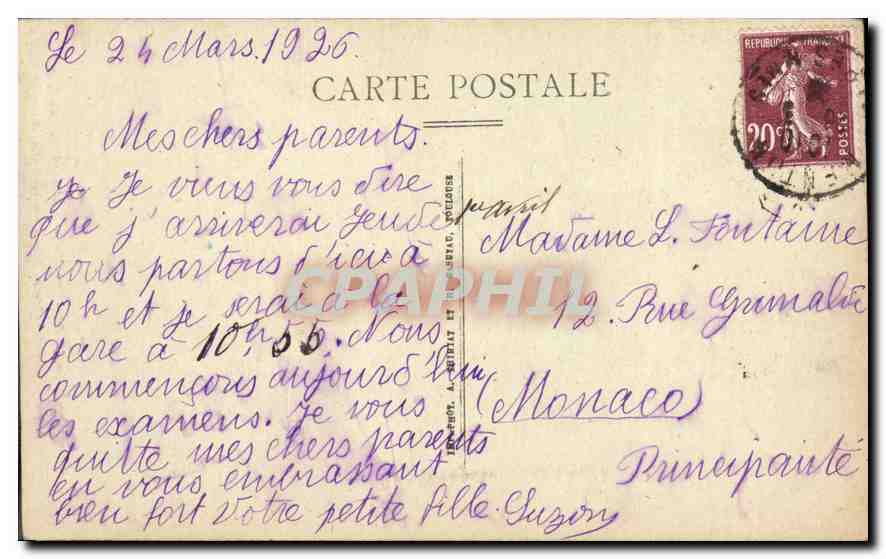 Le 24 Mars. 1926.
CARTE POSTALE
REPUBLIQUE FRANÇAISE
20c
POSTES
Mes chers parents.
Je Je viens vous dire
que j'arriverai Jeudi 1er avril
nous partons d'ici à
10 h et je serai à la
gare à 10h 55. Nous
commençons aujourd'hui
les examens. Je vous
quitte mes chers parents
en vous embrassant
bien fort Votre petite fille. Suzon
Madame L. Fontaine
12. Rue Grimaldi
(Monaco)
Principauté
TOULOUSE
CPAPHIL